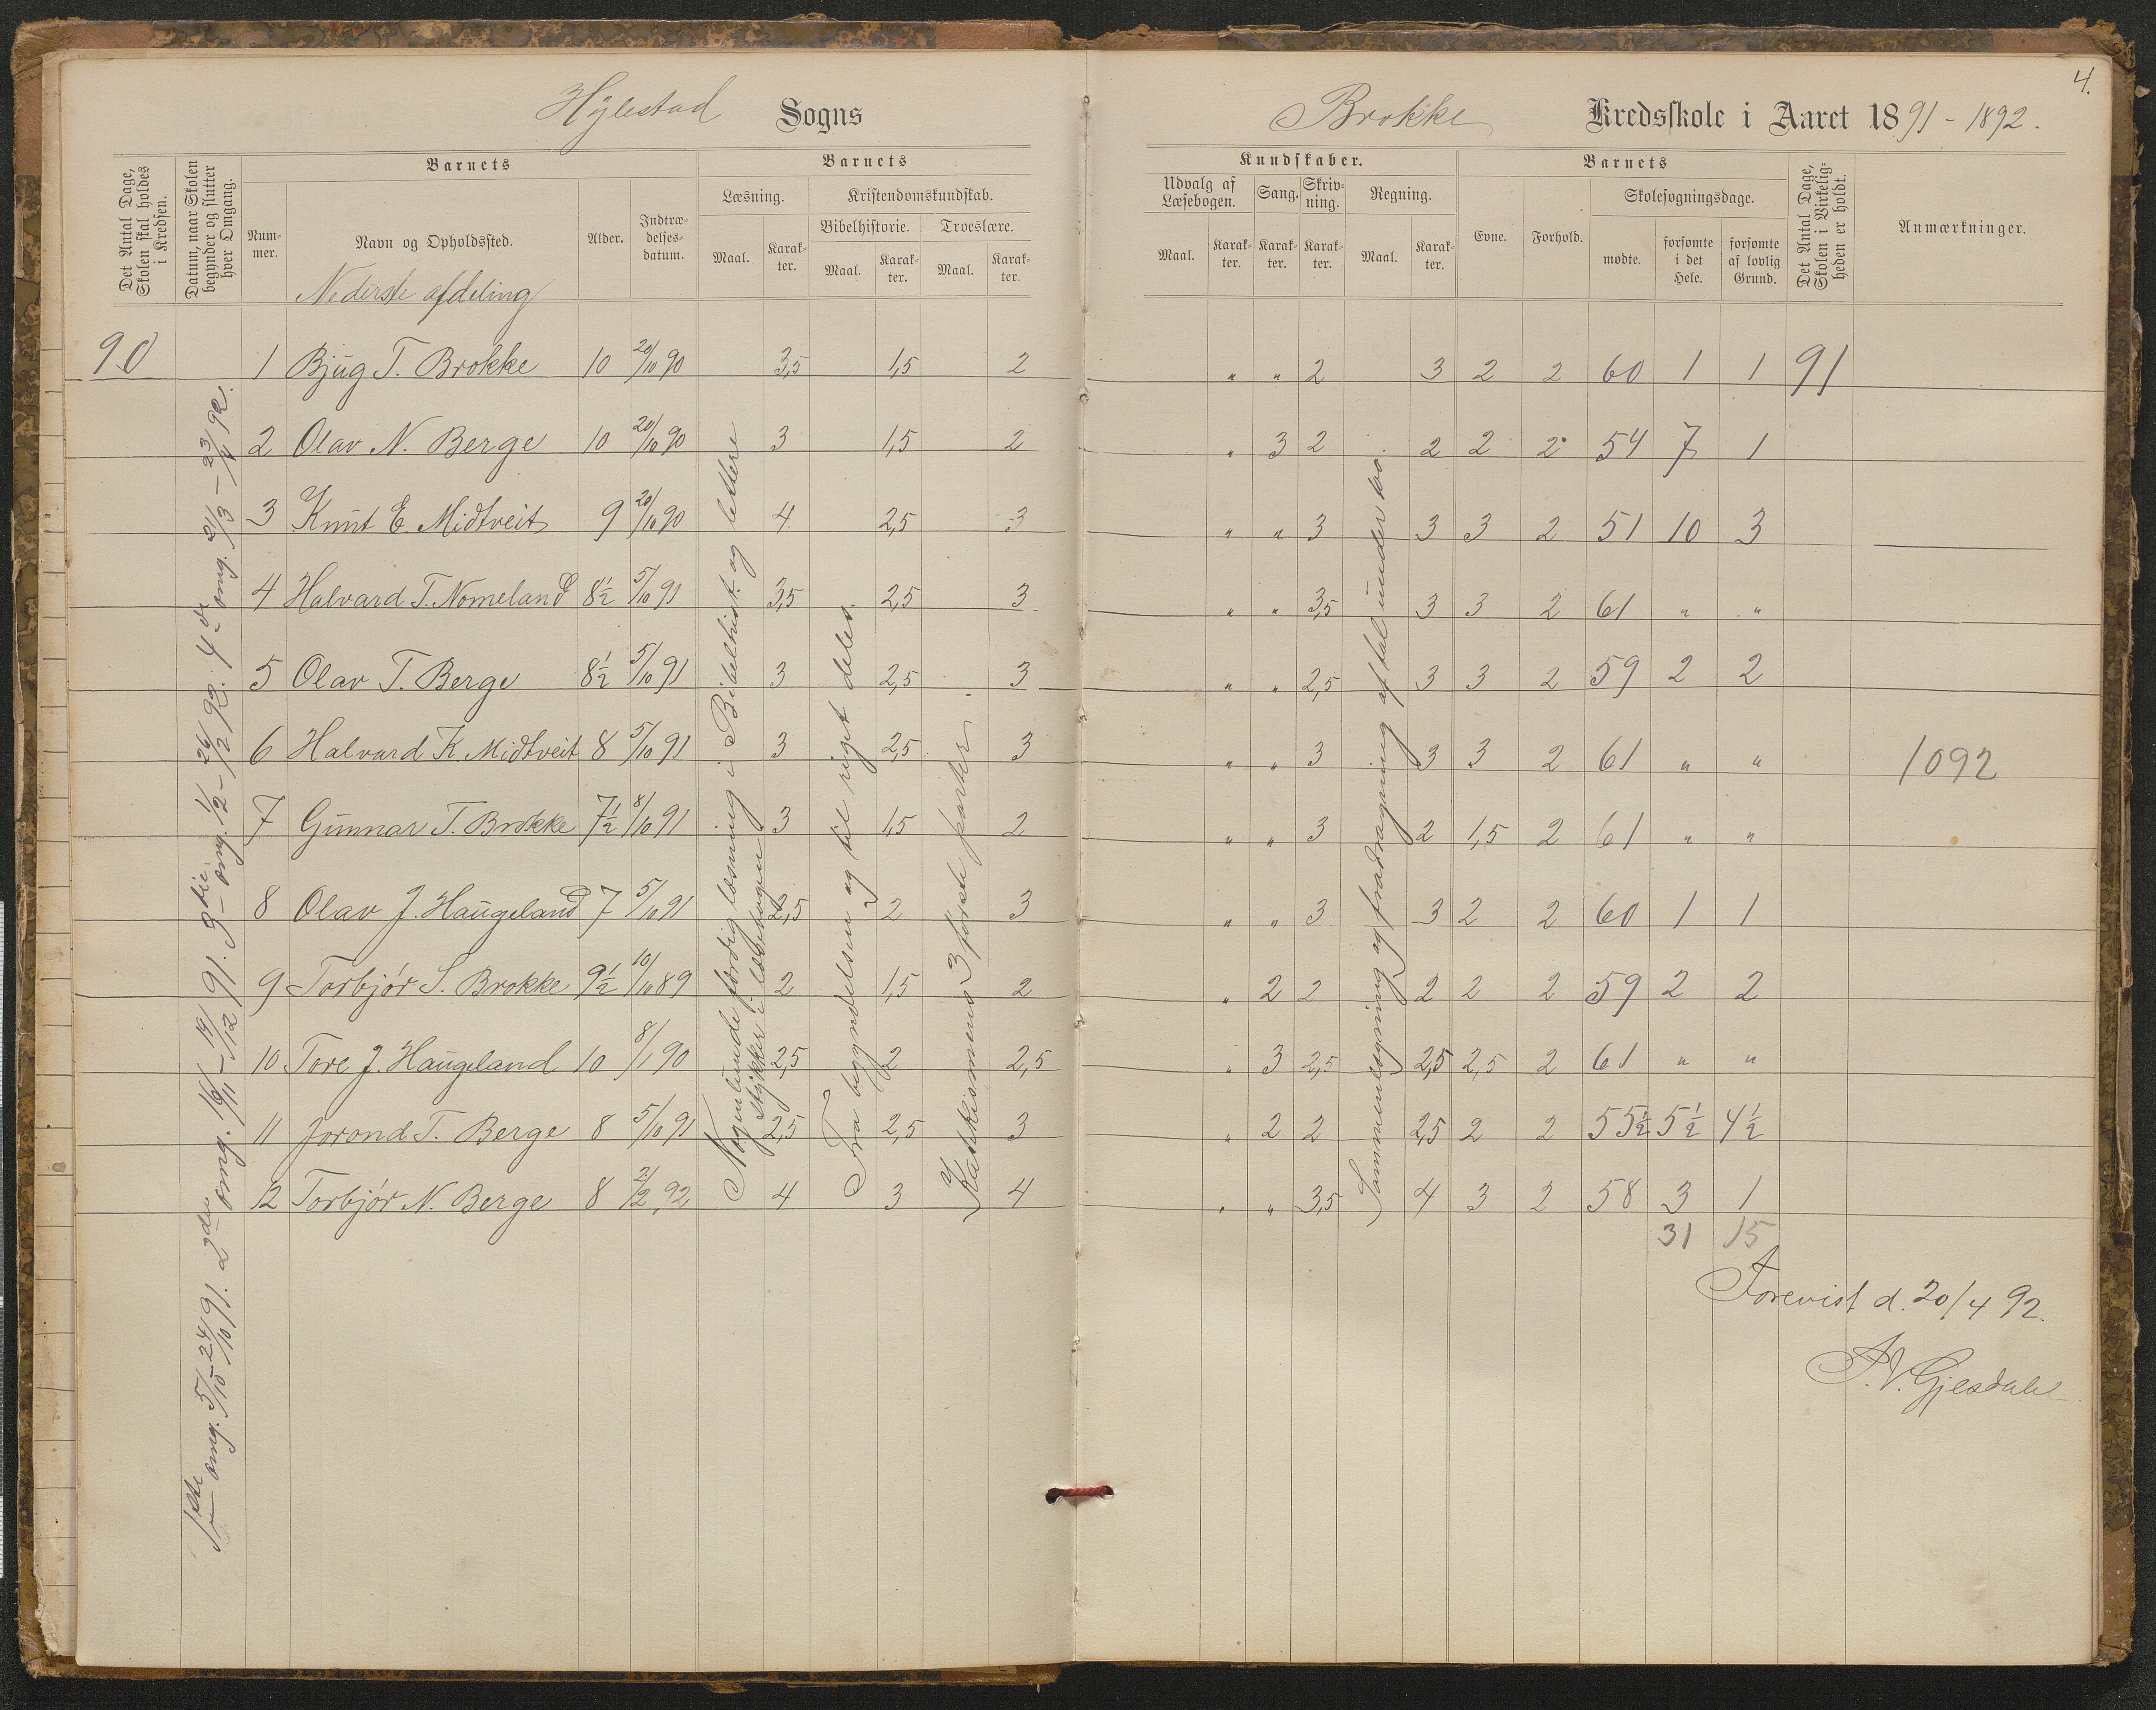 4.
Hylestad Sogns Brokke Kredsskole i Aaret 1891-1892.
Det Antal Dage, Skolen skal holdes i Kredsen.
Datum, naar Skolen begynder og slutter hver Omgang.
Barnets
Num-mer.
Navn og Opholdssted.
Alder.
Indtræ-delses-datum.
Barnets
Læsning.
Maal.
Karak-ter.
Kristendomskundskab.
Bibelhistorie.
Maal.
Karak-ter.
Troeslære.
Maal.
Karak-ter.
Kundskaber.
Udvalg af Læsebogen.
Maal.
Karak-ter.
Sang.
Karak-ter.
Skriv-ning.
Karak-ter.
Regning.
Maal.
Karak-ter.
Barnets
Evne.
Forhold.
Skolesøgningsdage.
mødte.
forsømte i det Hele.
forsømte af lovlig Grund.
Det Antal Dage, Skolen i Virkelig-heden er holdt.
Anmærkninger.
Nederste afdeling
90 1 Bjug T. Brokke 10 20/10 90 3,5 1,5 2 " " 2 3 2 2 60 1 1 91
2 Olav N. Berge 10 20/10 90 3 1,5 2 " 3 2 2 2 2 54 7 1
3 Knut E. Midtveit 9 20/10 90 4 2,5 3 " " 3 3 3 2 51 10 3
4 Halvard T. Nomeland 8½ 5/10 91 3,5 2,5 3 " " 3,5 3 3 2 61 " "
5 Olav T. Berge 8½ 5/10 91 3 2,5 3 " " 2,5 3 3 2 59 2 2
6 Halvard K. Midtveit 8 5/10 91 3 2,5 3 " " 3 3 3 2 61 " " 1092
7 Gunnar T. Brokke 7½ 8/10 91 3 1,5 2 " " 3 2 1,5 2 61 " "
8 Olav J. Haugeland 7 5/10 91 2,5 2 3 " " 3 3 2 2 60 1 1
9 Torbjór S. Brokke 9½ 10/10 89 2 1,5 2 " 2 2 2 2 2 59 2 2
10 Tore J. Haugeland 10 8/1 90 2,5 2 2,5 " 3 2,5 2,5 2,5 2 61 " "
11 Jorond T. Berge 8 5/10 91 2,5 2,5 3 " 2 2 2,5 2 2 55½ 5½ 4½
12 Torbjór N. Berge 8 2/2 92 4 3 4 " " 3,5 4 3 2 58 3 1
31 15
1ste omg. 5/10-24/10 91. 2den omg. 16/11-19/12 91. 3die omg. 1/2-26/2 92. 4de omg. 21/3-23/4 92.
Nogenlunde færdig læsning i Bibelhist. og lettere
stykker i læsebogen
Fra begyndelsen og til riget deles.
Katekismens 3 første parter.
Sammenlægning og fradragning af tal under 100.
Forevist d. 20/4 92.
P.V. Gjesdahl